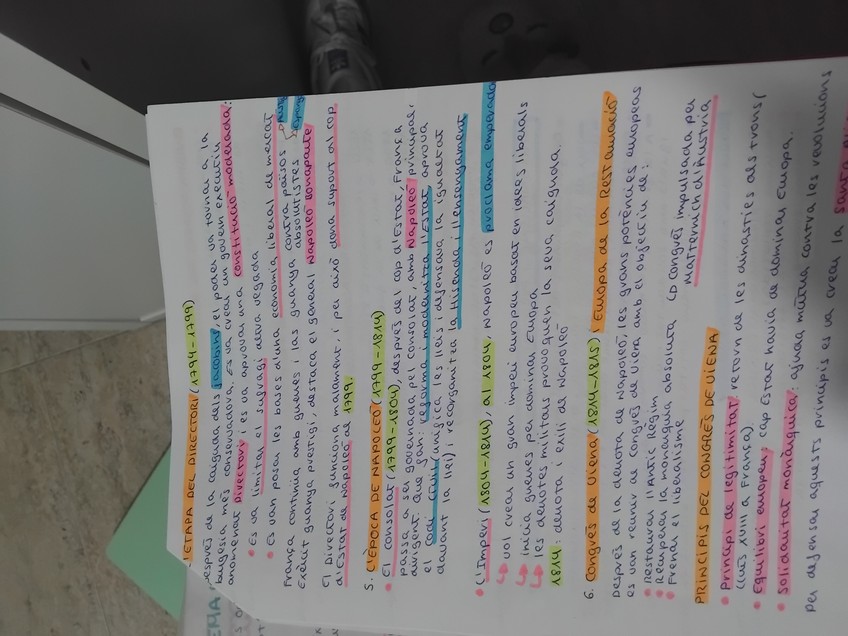 ETAPA DEL DIRECTORI (1794-1799)
Després de la caiguda dels jacobins, el poder va tornar a la
burgesia més conservadora. Es va crear un govern executiu
anomenat Directori i es va aprovar una constitució moderada:
• Es va limitar el sufragi altra vegada
• Es van posar les bases d'una economia liberal de mercat
França continua amb guerres i las guanya contra països
absolutistes
Exèrcit guanya prestigi, destaca el general Napoleó Bonaparte
El Directori funciona malament, i per això dona suport al cop
d'Estat de Napoleó de 1799.
5. L'ÈPOCA DE NAPOLEÓ (1799-1814)
• El consolat (1799-1804), després del cop d'Estat, França
passa a ser governada pel Consolat, amb Napoleó principal
dirigent. Que fan: reforma i modernitza l'Estat, aprova
el codi civil (unifica les lleis i defensava la igualtat
davant la llei) i reorganitza la Hisenda i l'ensenyament
• L'Imperi (1804-1814), al 1804, Napoleó es proclama emperador
→ vol crear un gran imperi europeu basat en idees liberals
→ Inicia guerres per dominar Europa
→ les derrotes militars provoquen la seva caiguda.
1814: derrota i exili de Napoleó
6. Congrés de Viena (1814-1815) i Europa de la Restauració
Després de la derrota de Napoleó, les grans potències europees
es van reunir al Congrés de Viena amb el objectiu de:
• Restaurar l'Antic Règim
• Recuperar la monarquia absoluta
• Frenar el liberalisme
CD congrés impulsada per
Matternich d'Àustria
PRINCIPIS DEL CONGRÉS DE VIENA
• Principi de legitimitat: retorn de les dinasties als trons (
Lluís XVIII a França).
• Equilibri europeu: cap Estat havia de dominar Europa.
• Solidaritat monàrquica: ajuda mútua contra les revolucions
per defensar aquests principis es va crear la Santa